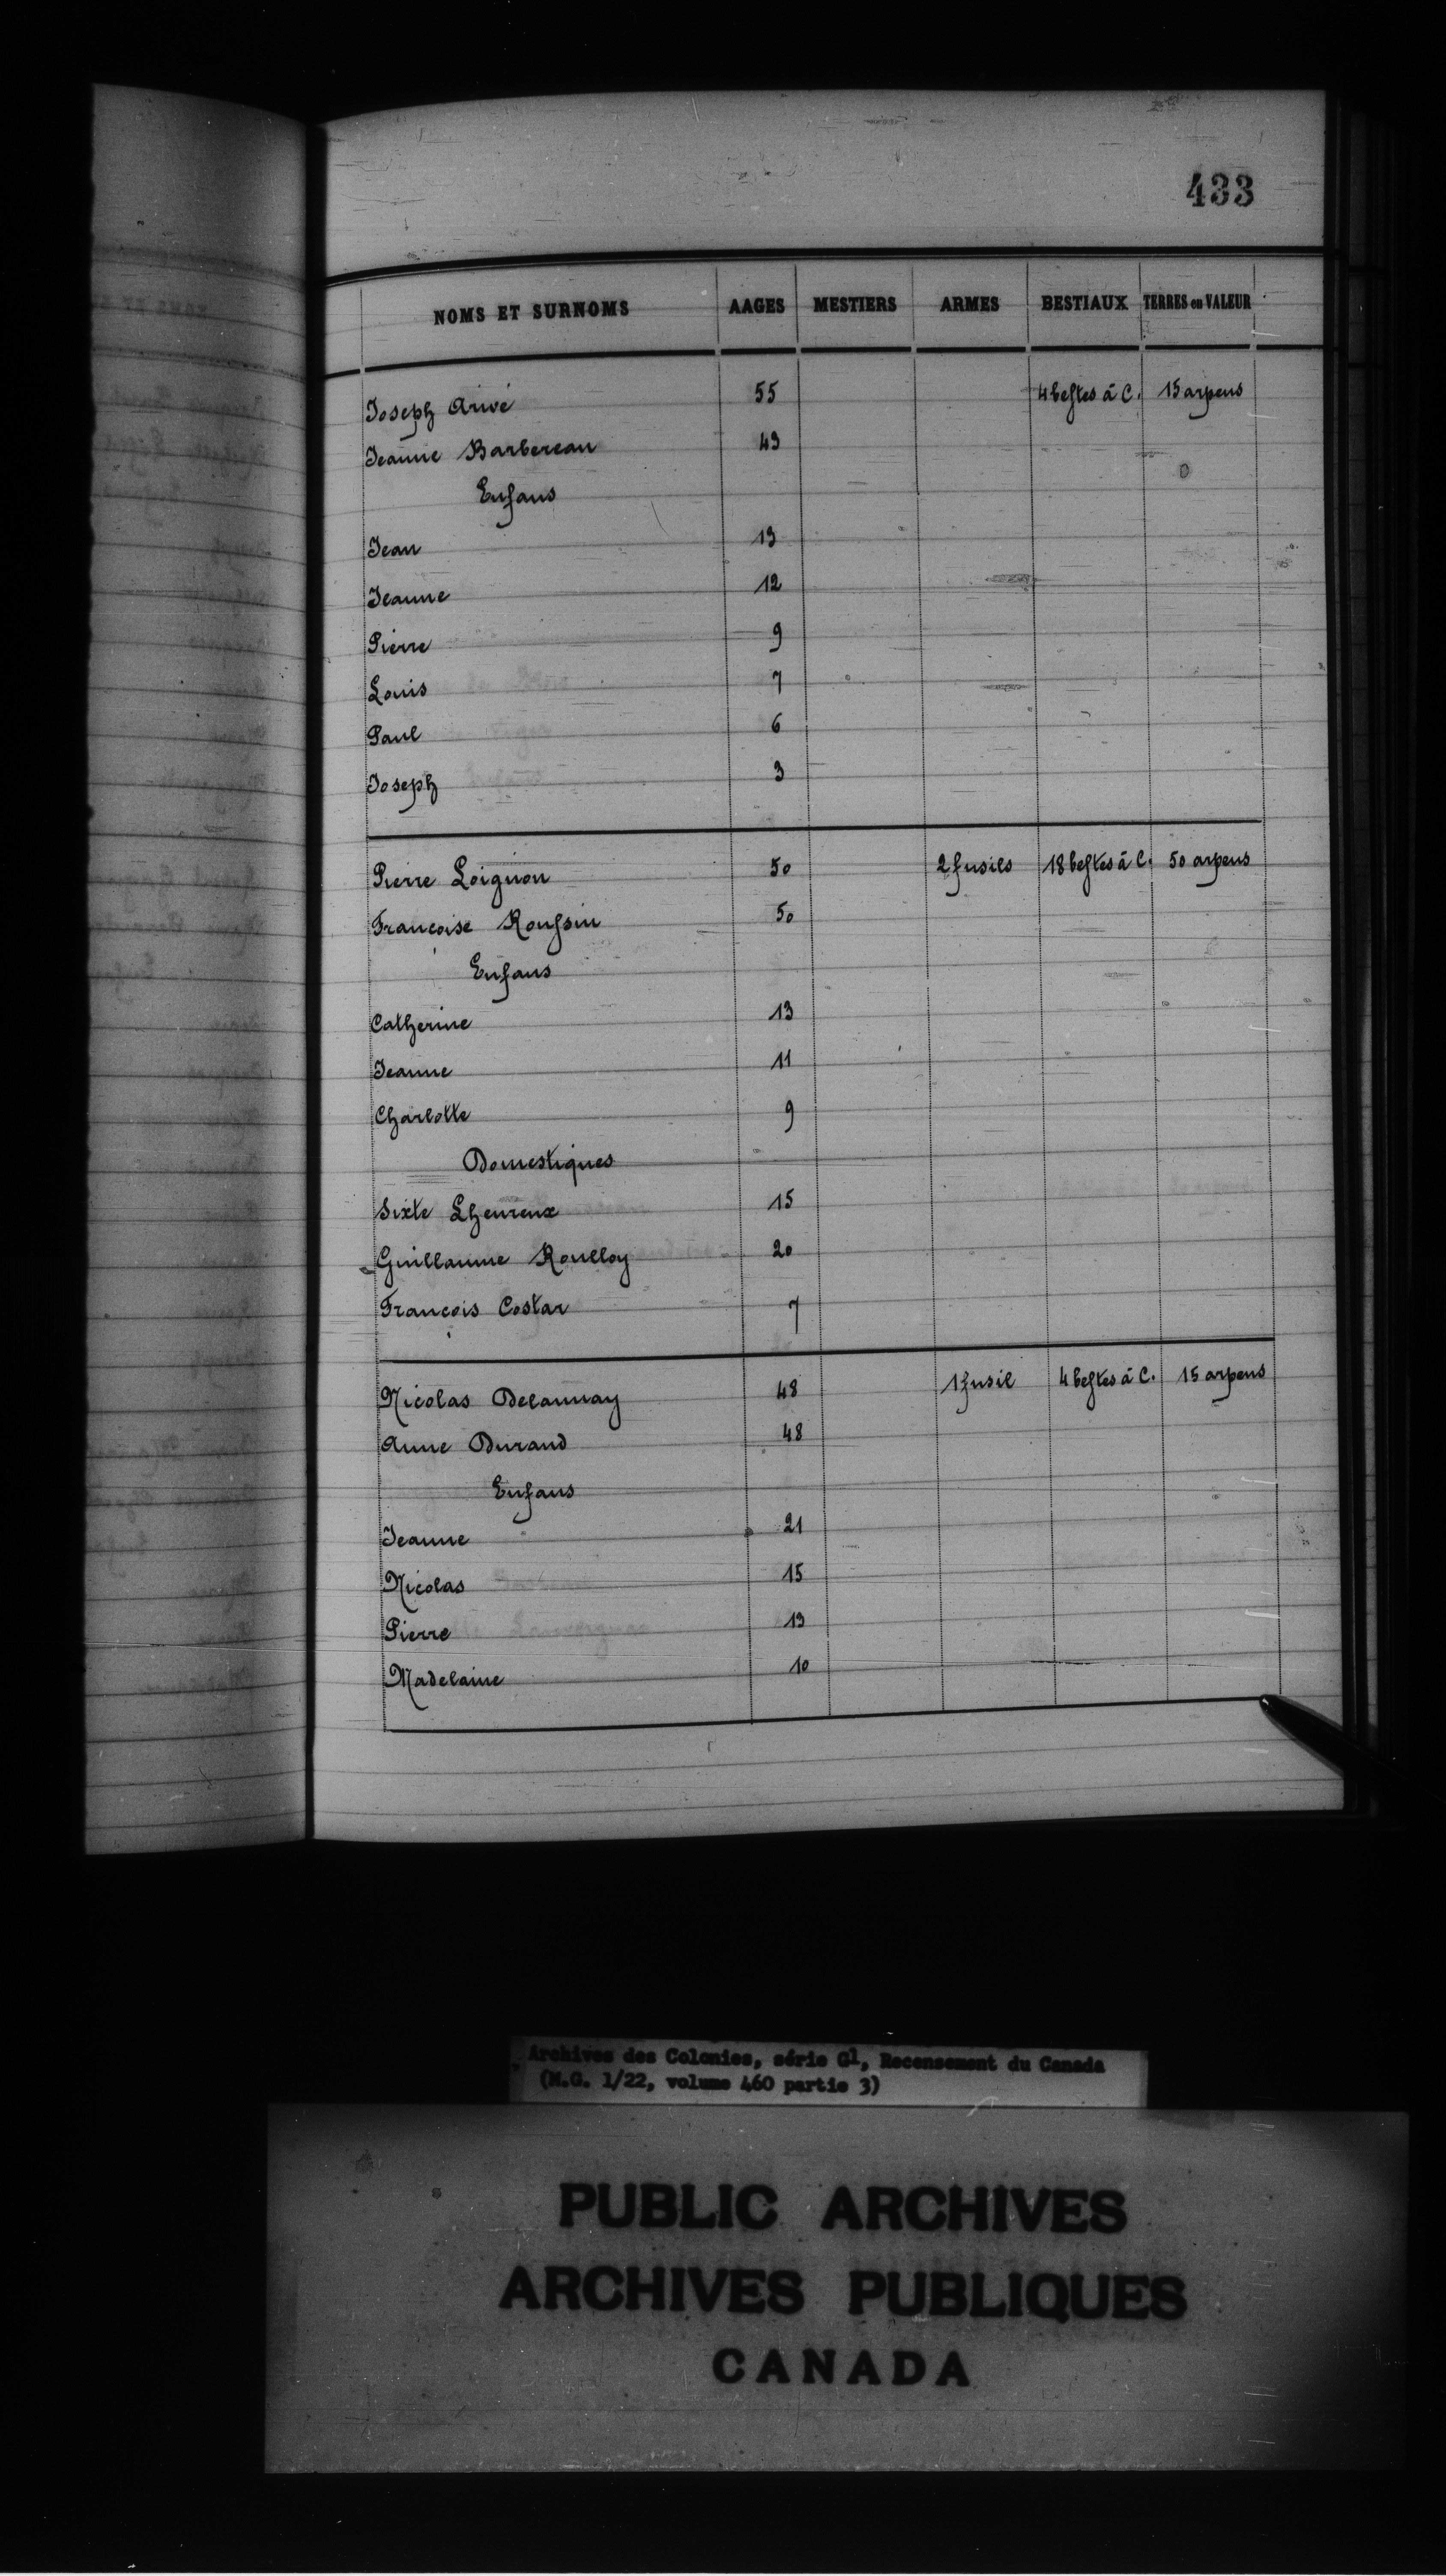 433
NOMS ET SURNOMS AAGES MESTIERS ARMES BESTIAUX TERRES en VALEUR
Joseph Arivé 55 4 bestes à C. 15 arpens
Jeanne Barbereau 43
Enfans
Jean 13
Jeanne 12
Pierre 9
Louis 7
Paul 6
Joseph 3
Pierre Loignon 50 2 fusils 18 bestes à C. 50 arpens
Francoise Roussin 50
Enfans
Catherine 13
Jeanne 11
Charlotte 9
Domestiques
Sixte Lheureux 15
Guillaume Roulloy 20
Francois Costar 7
Nicolas Delaunay 48 1 fusil 4 bestes à C. 15 arpens
Anne Durand 48
Enfans
Jeanne 21
Nicolas 15
Pierre 13
Madelaine 10
Archives des Colonies, série G1, Recensement du Canada
(M.G. 1/22, volume 460 partie 3)
PUBLIC ARCHIVES
ARCHIVES PUBLIQUES
CANADA